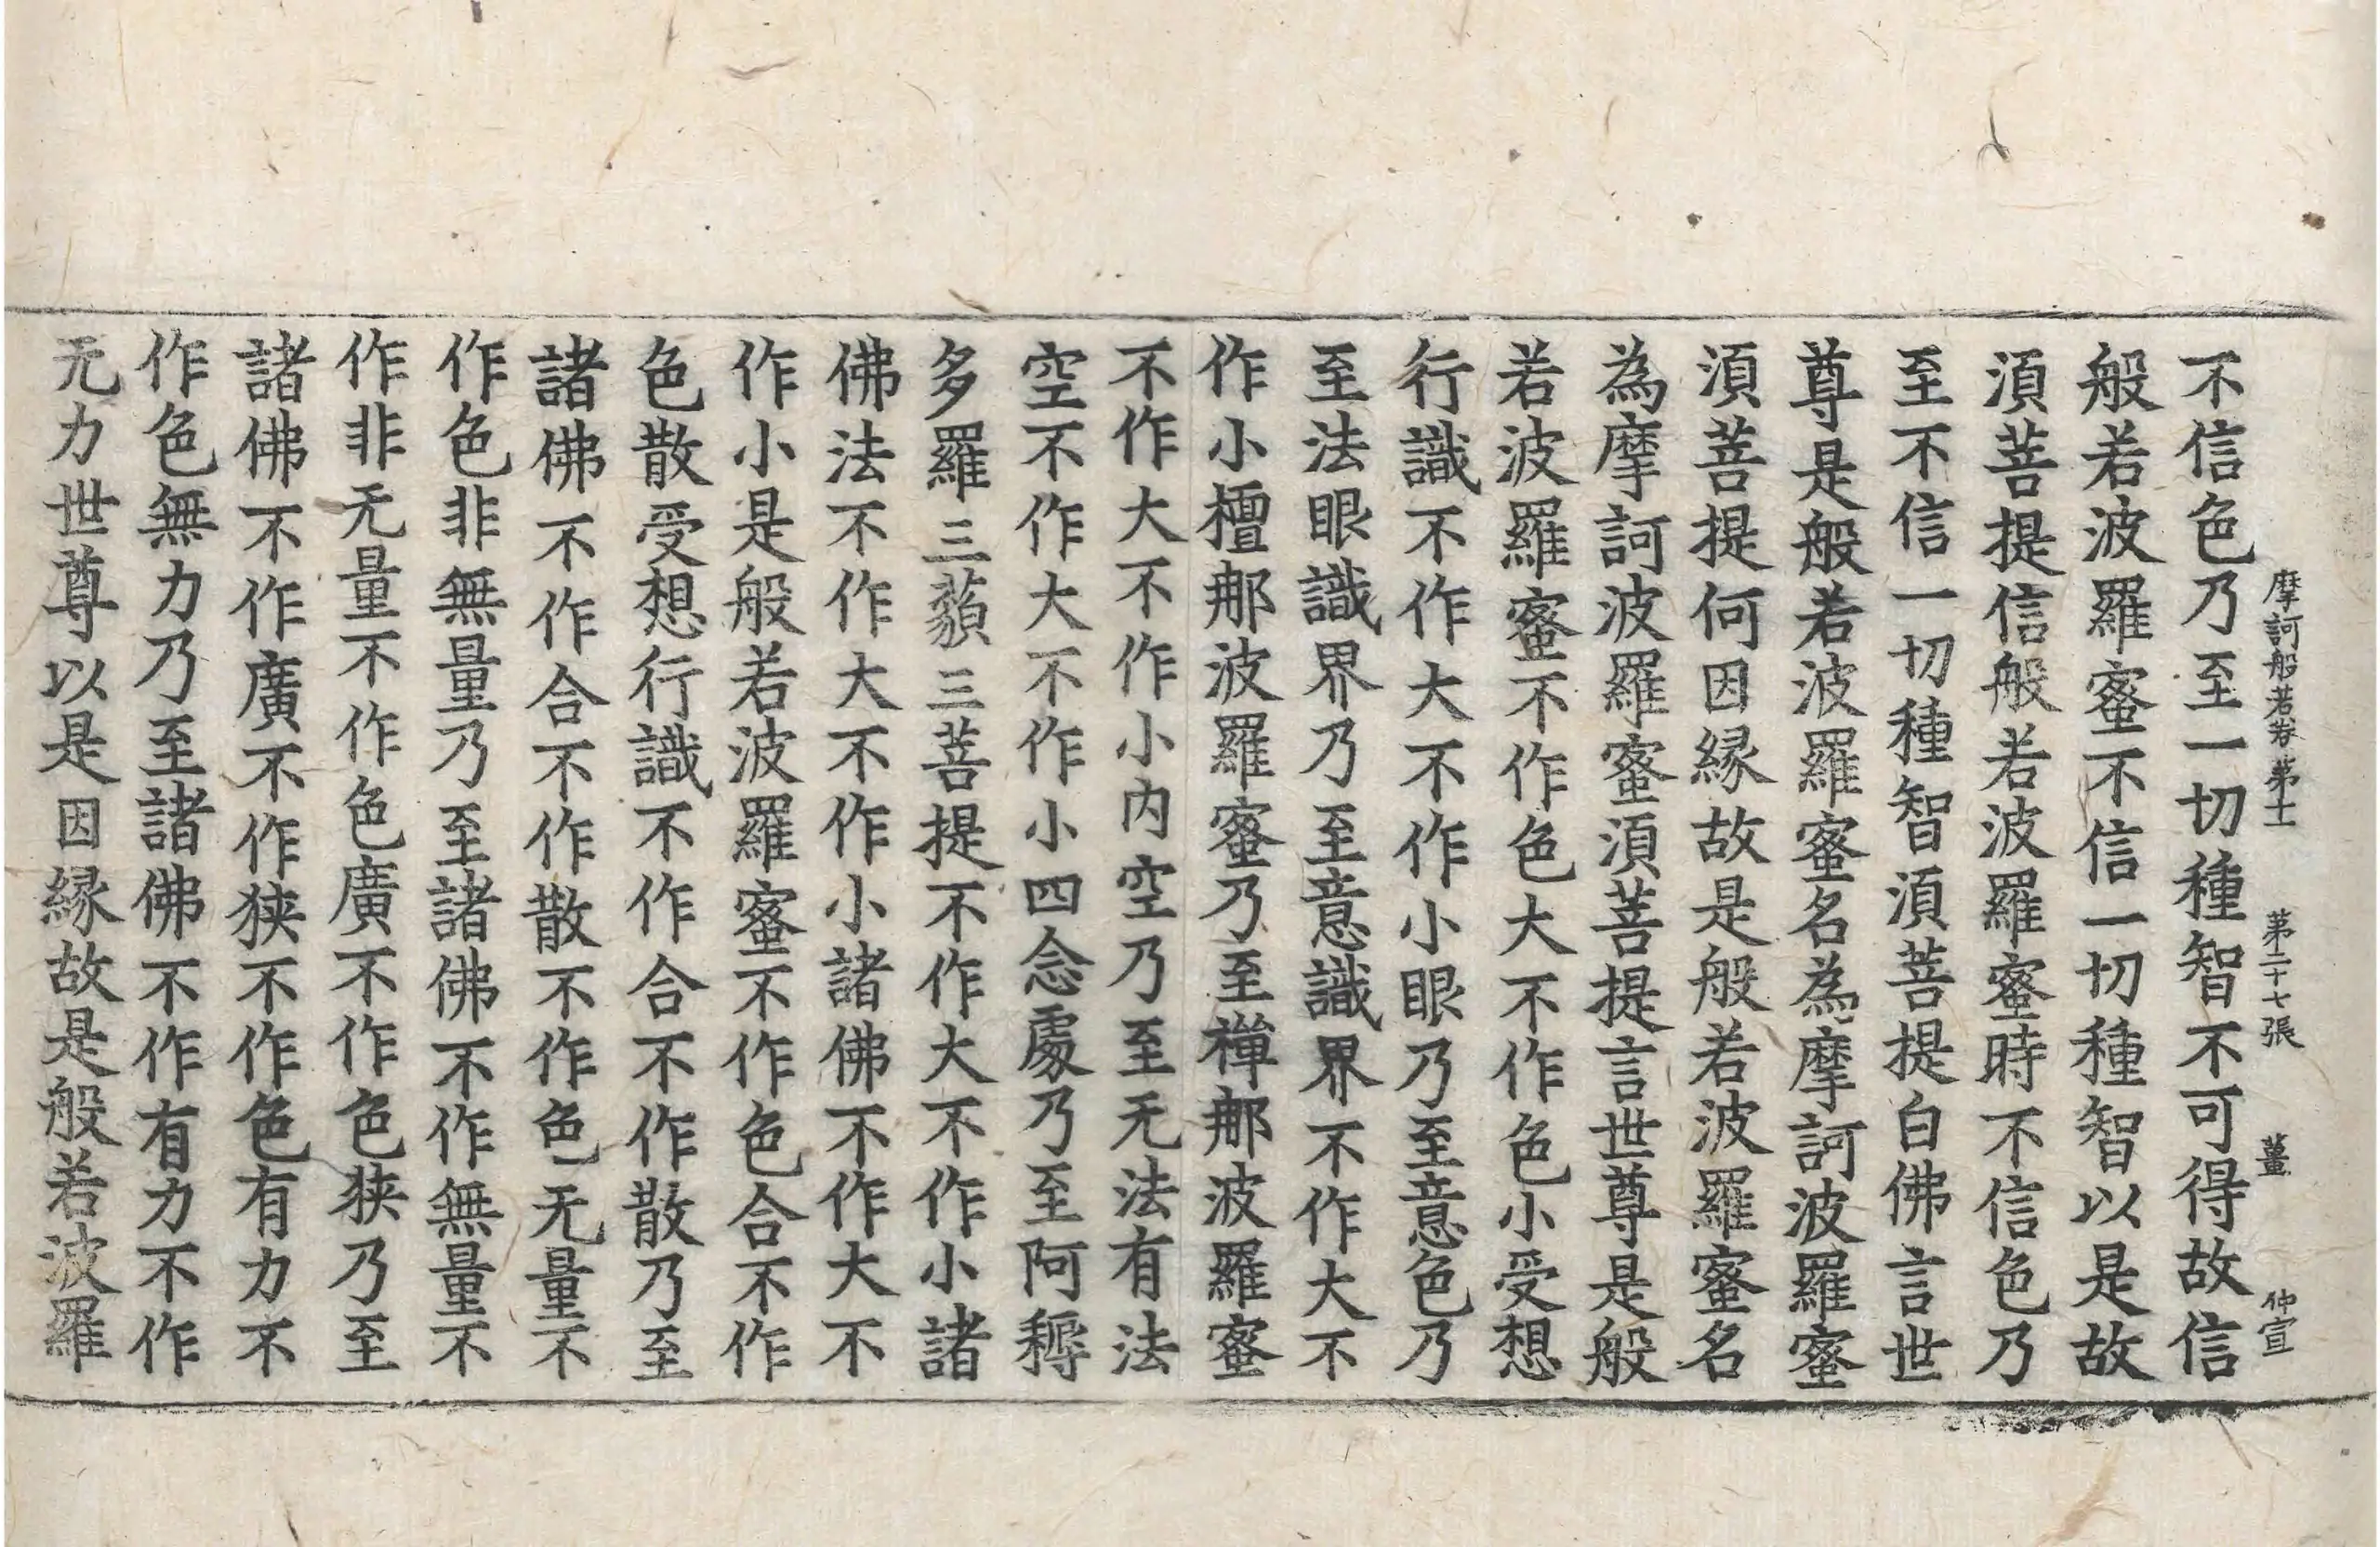 摩訶般若卷第十一 第二十七張 薑 仲宣
不信色乃至一切種智不可得故信
般若波羅蜜不信一切種智以是故
須菩提信般若波羅蜜時不信色乃
至不信一切種智須菩提白佛言世
尊是般若波羅蜜名為摩訶波羅蜜
須菩提何因緣故是般若波羅蜜名
為摩訶波羅蜜須菩提言世尊是般
若波羅蜜不作色大不作色小受想
行識不作大不作小眼乃至意色乃
至法眼識界乃至意識界不作大不
作小檀那波羅蜜乃至禪那波羅蜜
不作大不作小內空乃至无法有法
空不作大不作小四念處乃至阿耨
多羅三藐三菩提不作大不作小諸
佛法不作大不作小諸佛不作大不
作小是般若波羅蜜不作色合不作
色散受想行識不作合不作散乃至
諸佛不作合不作散不作色无量不
作色非無量乃至諸佛不作無量不
作非无量不作色廣不作色狹乃至
諸佛不作廣不作狹不作色有力不
作色無力乃至諸佛不作有力不作
无力世尊以是因緣故是般若波羅